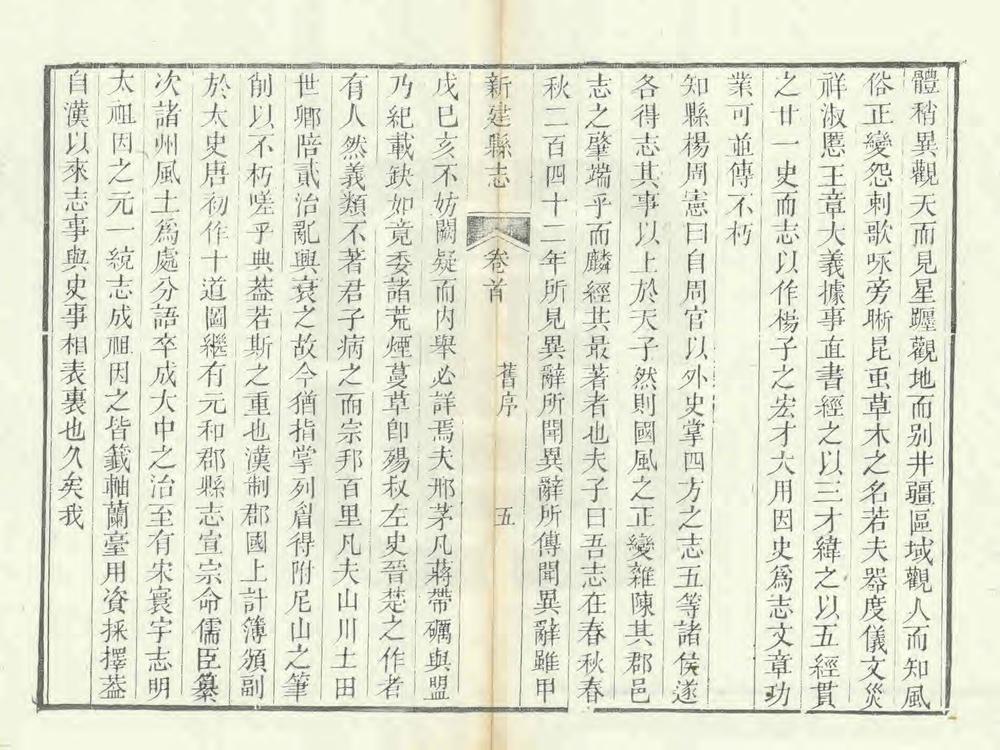 體稍異觀天而見星躔觀地而別井疆區域觀人而知風
俗正變怨刺歌咏旁晰昆虫草木之名若夫器度儀文災
祥淑慝王章大義據事直書經之以三才緯之以五經貫
之廿一史而志以作楊子之宏才六用因史爲志文章功
業可並傳不朽
知縣楊周憲曰自周官以外史掌四方之志五等諸侯遂
各得志其事以上於天子然則國風之正變雜陳其郡邑
志之肇端乎而麟經其最著者也夫子曰吾志在春秋春
秋二百四十二年所見異辭所聞異辭所傳聞異辭雖甲
新建縣志 卷首 舊序 五
戊巳亥不妨闕疑而内舉必詳焉夫邢茅凡蔣帶礪與盟
乃紀載缺如竟委諸荒煙蔓草卽殤叔左史晉楚之作者
有人然義類不著君子病之而宗邦百里凡夫山川土田
世卿陪貳治亂興衰之故今猶指掌列眉得附尼山之筆
削以不朽嗟乎典葢若斯之重也漢制郡國上計簿頒副
於太史唐初作十道圖繼有元和郡縣志宣宗命儒臣纂
次諸州風土爲處分語卒成大中之治至有宋寰宇志明
太祖因之元一統志成祖因之皆籤軸蘭臺用資採擇葢
自漢以來志事與史事相表裏也久矣我